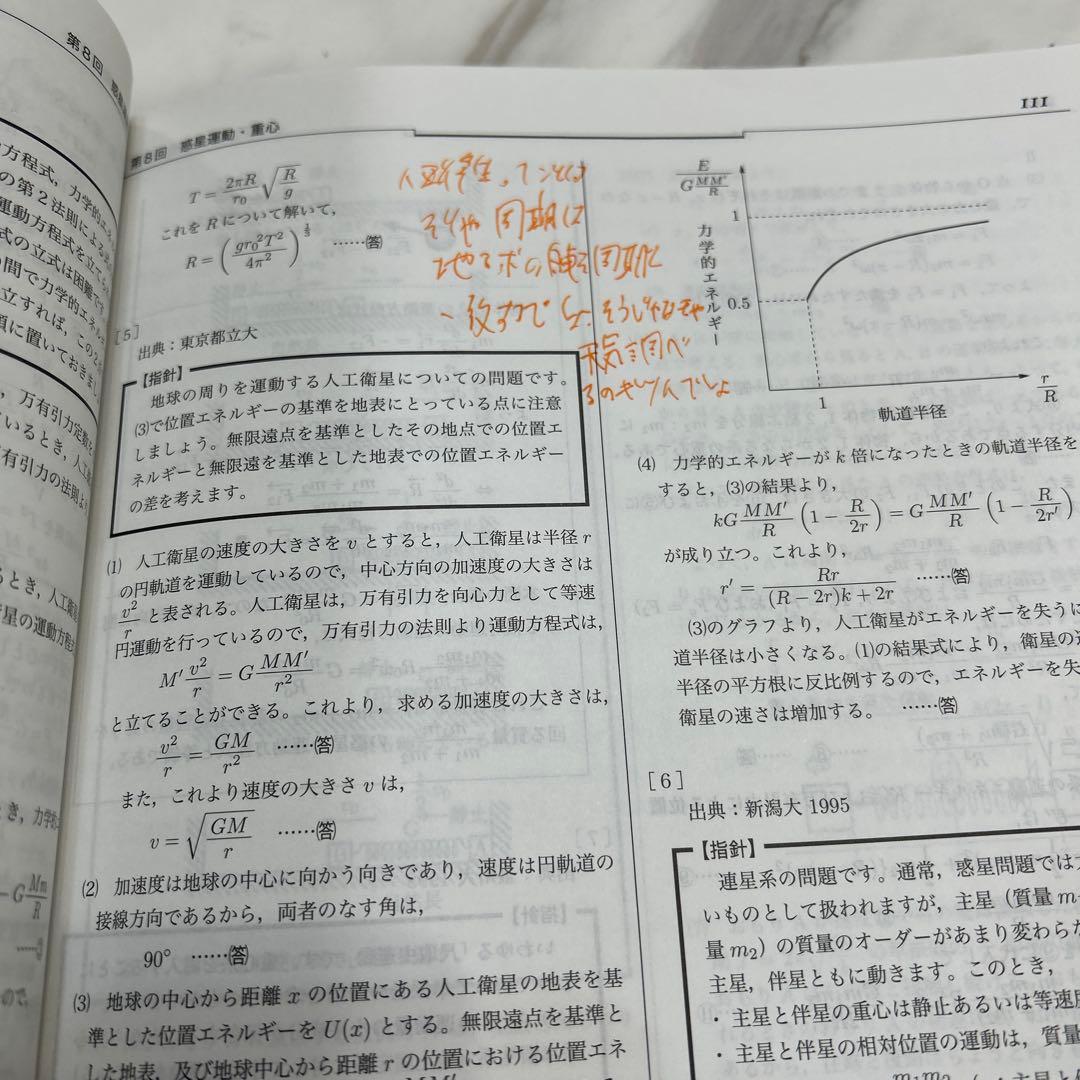 第8回 惑星
方程式，力学的エネ
の第2法則による
運動方程式を立て
式の立式は困難で
間で力学的エネル
立すれば，この2
頭に置いておきまし
万有引力定数を
ているとき，人工衛
有引力の法則より
るとき，人工衛
星の運動方程
とき，力学的
−G Mm/R
第8回 惑星運動・重心
111
T = 2πR/r₀ √(R/g)
これを R について解いて，
R = (gr₀²T²/4π²)^(1/3) ……(答)
人工衛星ってことは
そりゃ周期は
地球の自転周期に
一致するでしょ. そうじゃなきゃ
天気調べ
るのキツいでしょ
[5]
出典：東京都立大
【指針】
地球の周りを運動する人工衛星についての問題です。
(3)で位置エネルギーの基準を地表にとっている点に注意
しましょう。無限遠点を基準としたその地点での位置エ
ネルギーと無限遠を基準とした地表での位置エネルギー
の差を考えます。
(1) 人工衛星の速度の大きさを v とすると，人工衛星は半径 r
の円軌道を運動しているので，中心方向の加速度の大きさは
v²/r と表される。人工衛星は，万有引力を向心力として等速
円運動を行っているので，万有引力の法則より運動方程式は，
M′ v²/r = G MM′/r²
と立てることができる。これより，求める加速度の大きさは，
v²/r = GM/r² ……(答)
また，これより速度の大きさ v は，
v = √(GM/r) ……(答)
(2) 加速度は地球の中心に向かう向きであり，速度は円軌道の
接線方向であるから，両者のなす角は，
90° ……(答)
(3) 地球の中心から距離 x の位置にある人工衛星の地表を基
準とした位置エネルギーを U(x) とする。無限遠点を基準と
した地表，及び地球中心から距離 r の位置における位置エネ
E/(G MM′/R)
1
力学的エネルギー
0.5
1
軌道半径
r/R
(4) 力学的エネルギーが k 倍になったときの軌道半径を
すると，(3)の結果より，
kG MM′/R (1 − R/2r) = G MM′/R (1 − R/2r′)
が成り立つ。これより，
r′ = Rr/((R−2r)k+2r) ……(答)
(3)のグラフより，人工衛星がエネルギーを失うに
道半径は小さくなる。(1)の結果式により，衛星の速
半径の平方根に反比例するので，エネルギーを失
衛星の速さは増加する。 ……(答)
[6]
出典：新潟大 1995
【指針】
連星系の問題です。通常，惑星問題では
いものとして扱われますが，主星（質量 m
量 m₂）の質量のオーダーがあまり変わらな
主星，伴星ともに動きます。このとき，
・主星と伴星の重心は静止あるいは等速度
・主星と伴星の相対位置の運動は，質量
m₁m₂